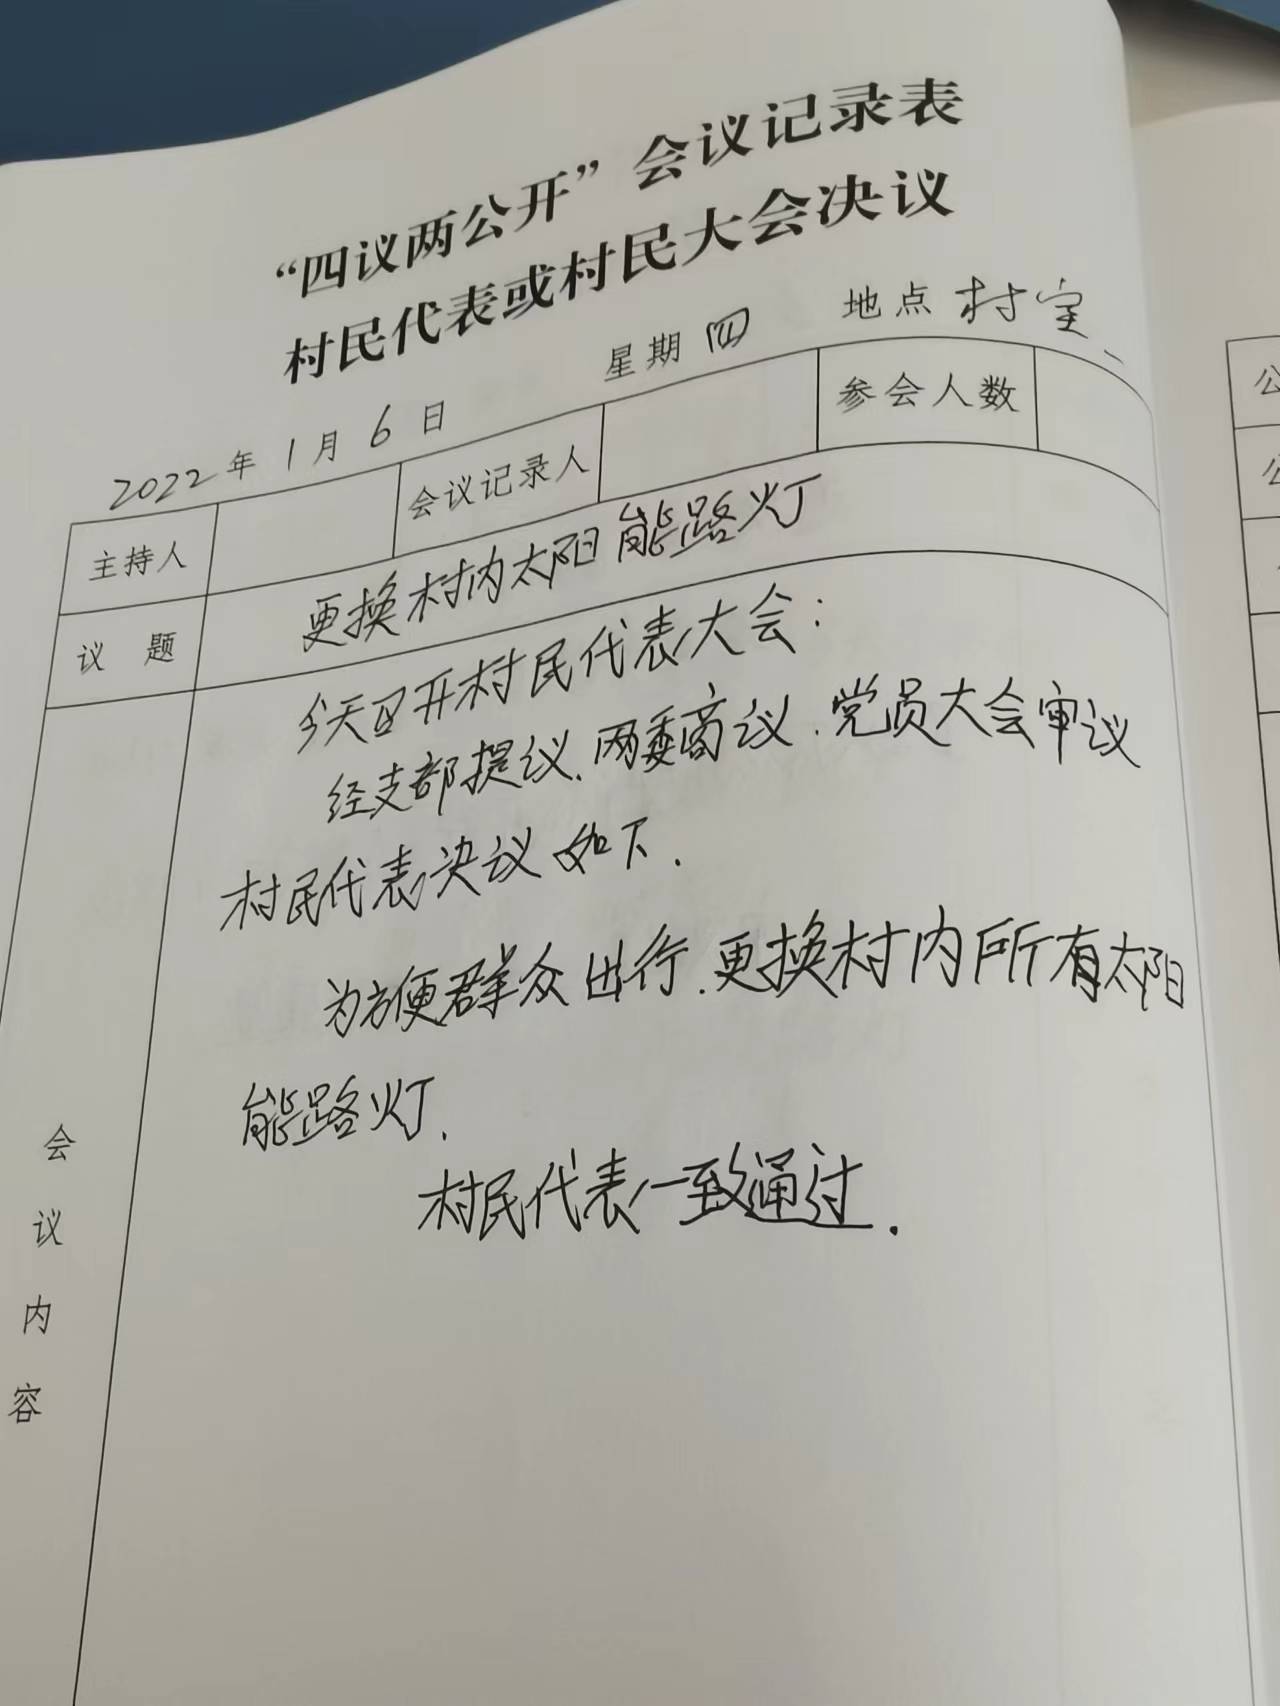 “四议两公开”会议记录表
村民代表或村民大会决议
2022年1月6日 星期四 地点 村室
主持人 会议记录人 参会人数
议题 更换村内太阳能路灯
会议内容
今天召开村民代表大会：
经支部提议.两委商议.党员大会审议
村民代表决议如下.
为方便群众出行.更换村内所有太阳
能路灯.
村民代表一致通过.
公
公